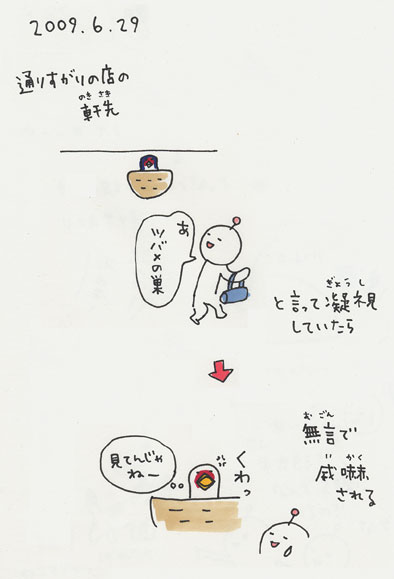 2009.6.29
通りすがりの店の
のきさき
軒先
あ
ツバメの巣
ぎょうし
と言って凝視
していたら
おごん
無言で
いかく
威嚇
される
見てんじゃ
ねー
くわっ